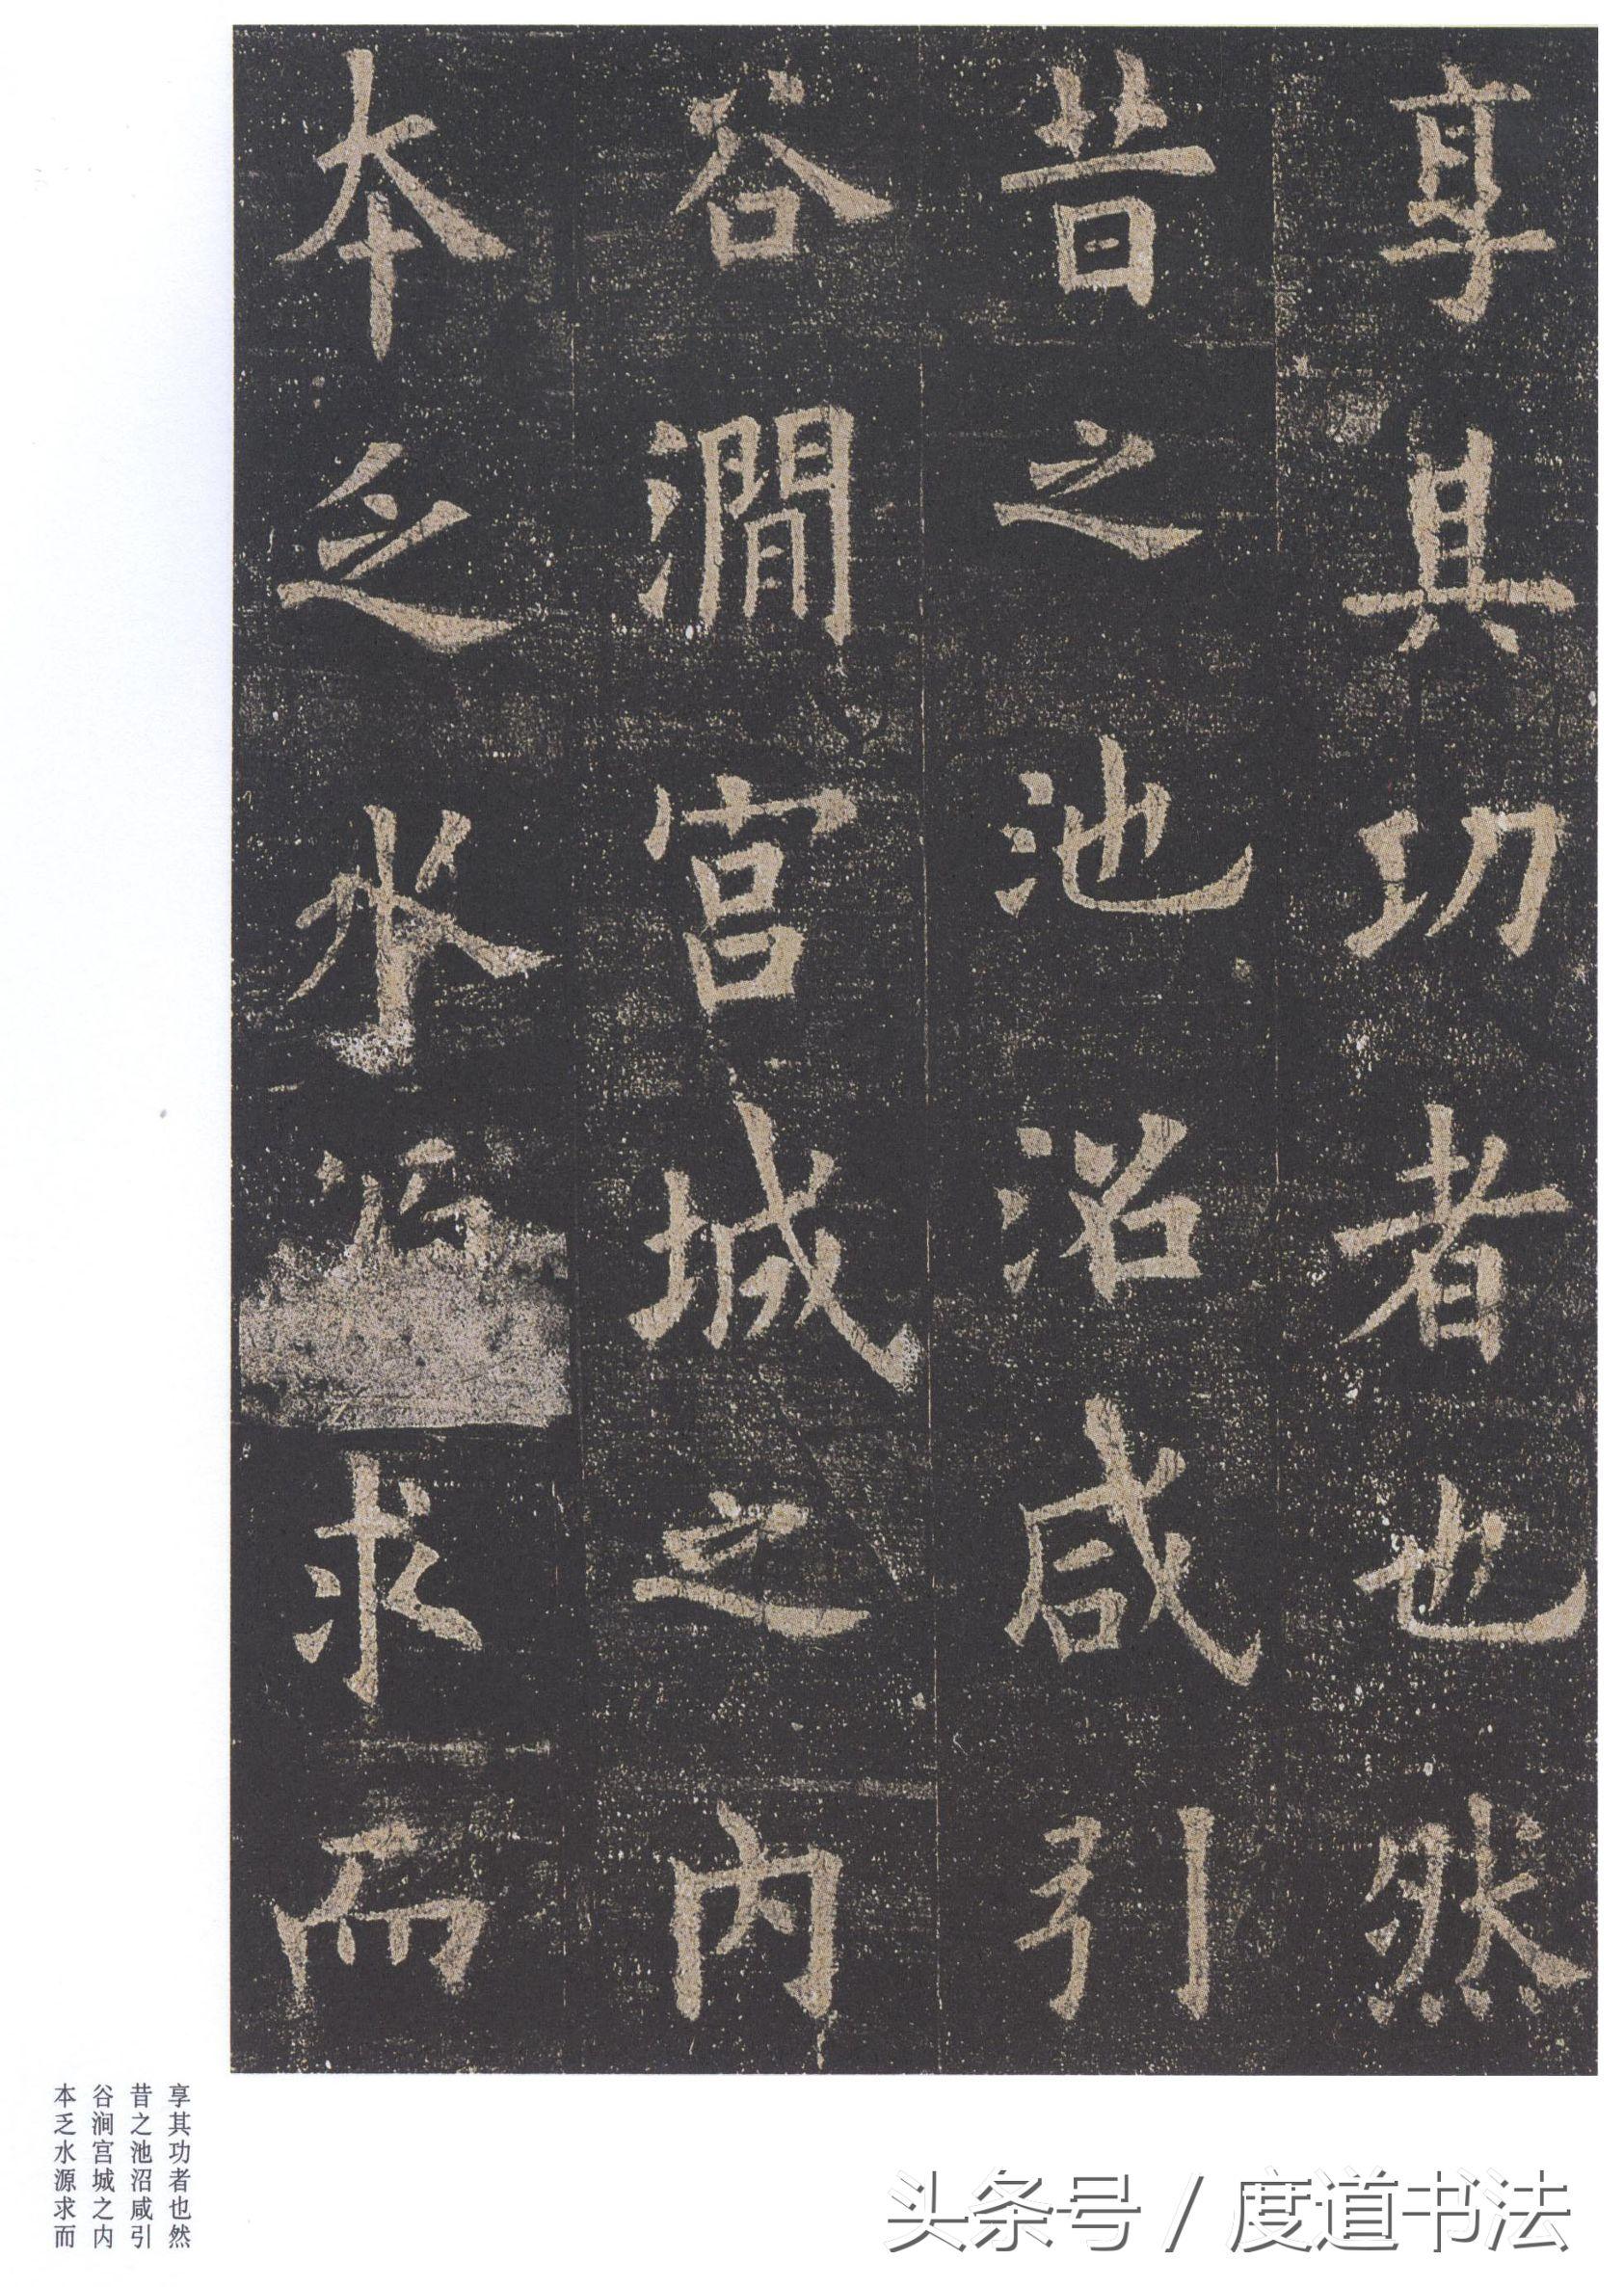 享其功者也然
昔之池沼咸引
谷澗宮城之內
本乏水求而
享其功者也然
昔之池沼咸引
谷涧宫城之内
本乏水源求而
头条号 / 度道书法